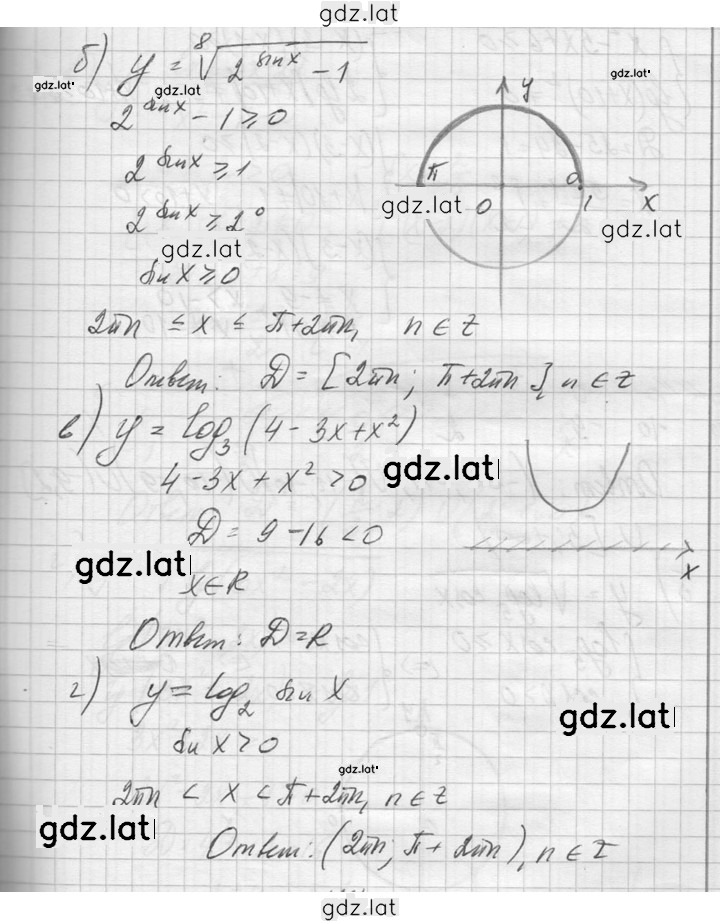 gdz.lat
б) y = ⁸√(2^sinx − 1)
gdz.lat
gdz.lat
gdz.lat
2^sinx − 1 ≥ 0
y
2^sinx ≥ 1
π 0
gdz.lat 0 1 x
2^sinx ≥ 2^0
gdz.lat
gdz.lat
sin x ≥ 0
2πn ≤ x ≤ π+2πn, n ∈ Z
Ответ: D = [2πn; π+2πn], n ∈ Z
в) y = log₃(4 − 3x + x²)
4 − 3x + x² > 0
gdz.lat
D = 9 − 16 < 0
gdz.lat
x
x ∈ R
Ответ: D = R
г) y = log₂ sin x
gdz.lat
sin x > 0
gdz.lat
2πn < x < π + 2πn, n ∈ Z
gdz.lat
Ответ: (2πn; π + 2πn), n ∈ Z
gdz.lat